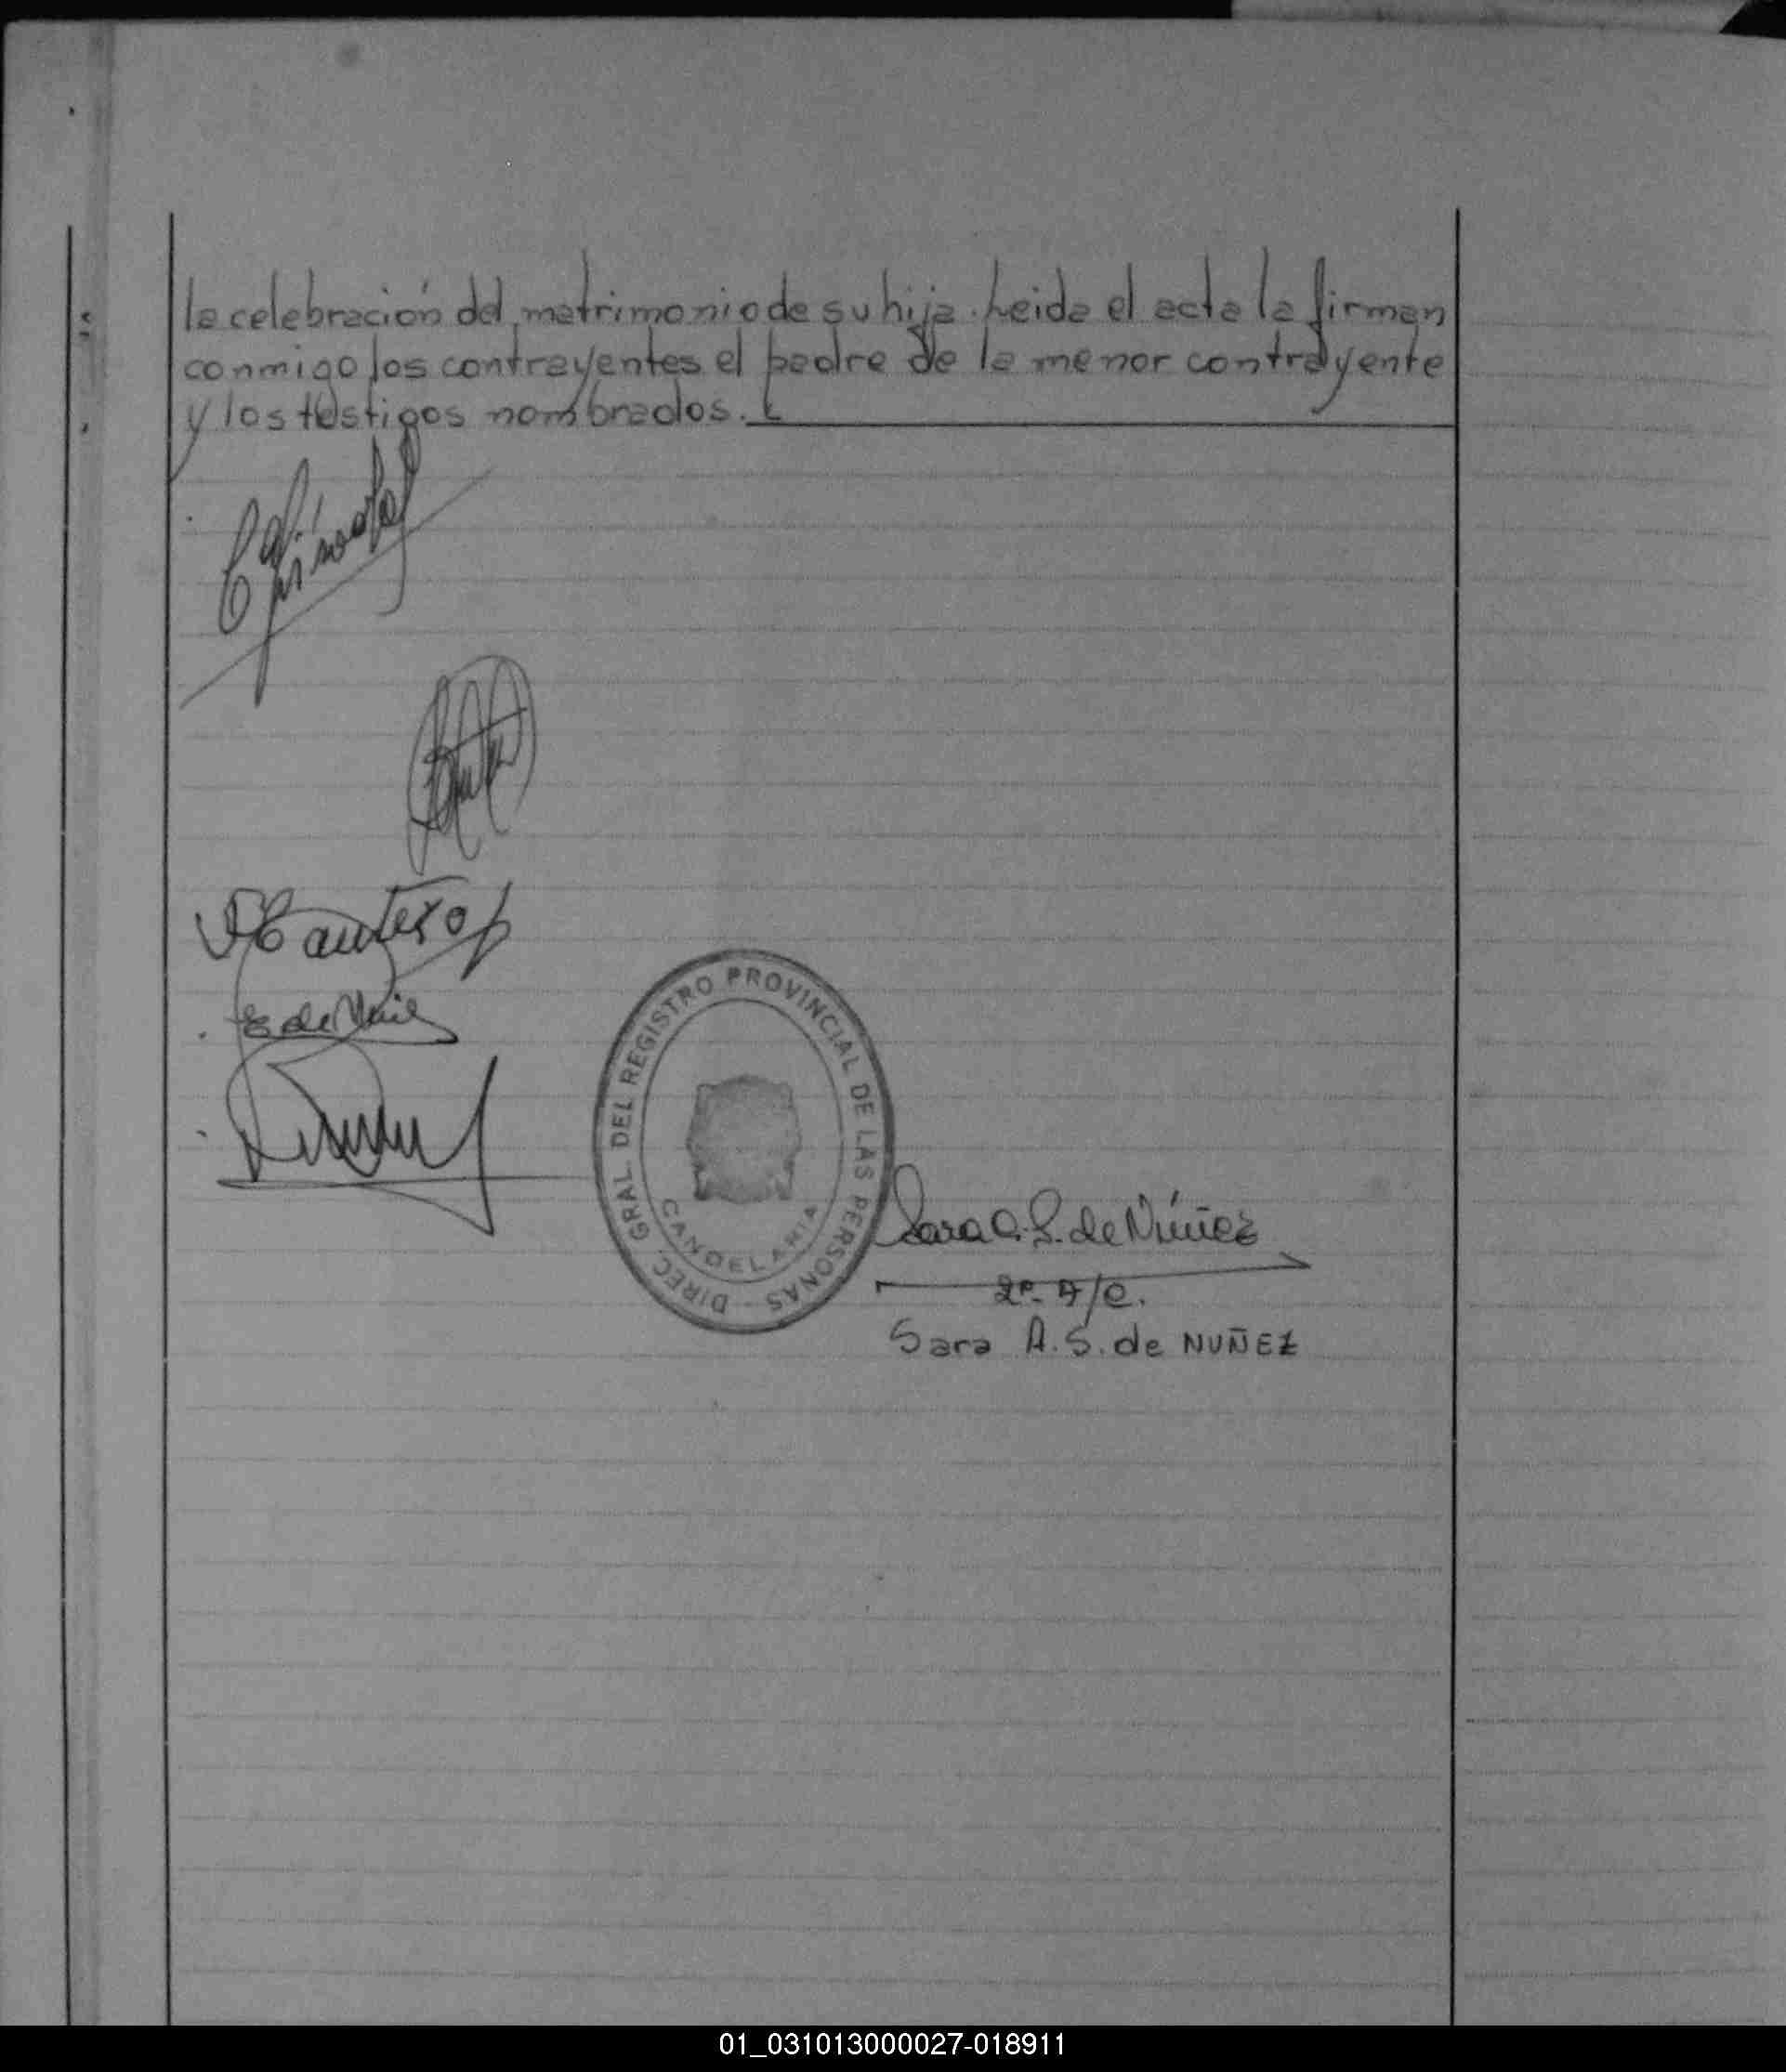 la celebración del matrimonio de su hija. Leida el acta la firman
conmigo los contrayentes el padre de la menor contrayente
y los testigos nombrados.
Cantero
E de
DIREC. GRAL. DEL REGISTRO PROVINCIAL DE LAS PERSONAS
CANDELARIA
Sara A. S. de Núñez
Sara A. S. de NUÑEZ
01_031013000027-018911